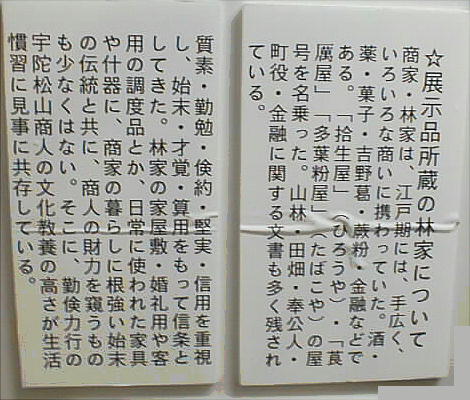 ☆展示品所蔵の林家について
商家・林家は、江戸期には、手広く、
いろいろな商いに携わっていた。酒・
薬・菓子・吉野葛・蕨粉・金融などで
ある。「拾生屋」（ひろうや）・「莨
厲屋」「多葉粉屋」（たばこや）の屋
号を名乗った。山林・田畑・奉公人・
町役・金融に関する文書も多く残され
ている。
質素・勤勉・倹約・堅実・信用を重視
し、始末・才覚・算用をもって信条と
してきた。林家の家屋敷・婚礼用や客
用の調度品とか、日常に使われた家具
や什器に、商家の暮らしに根強い始末
の伝統と共に、商人の財力を窺うもの
も少なくはない。そこに、勤倹力行の
宇陀松山商人の文化教養の高さが生活
慣習に見事に共存している。